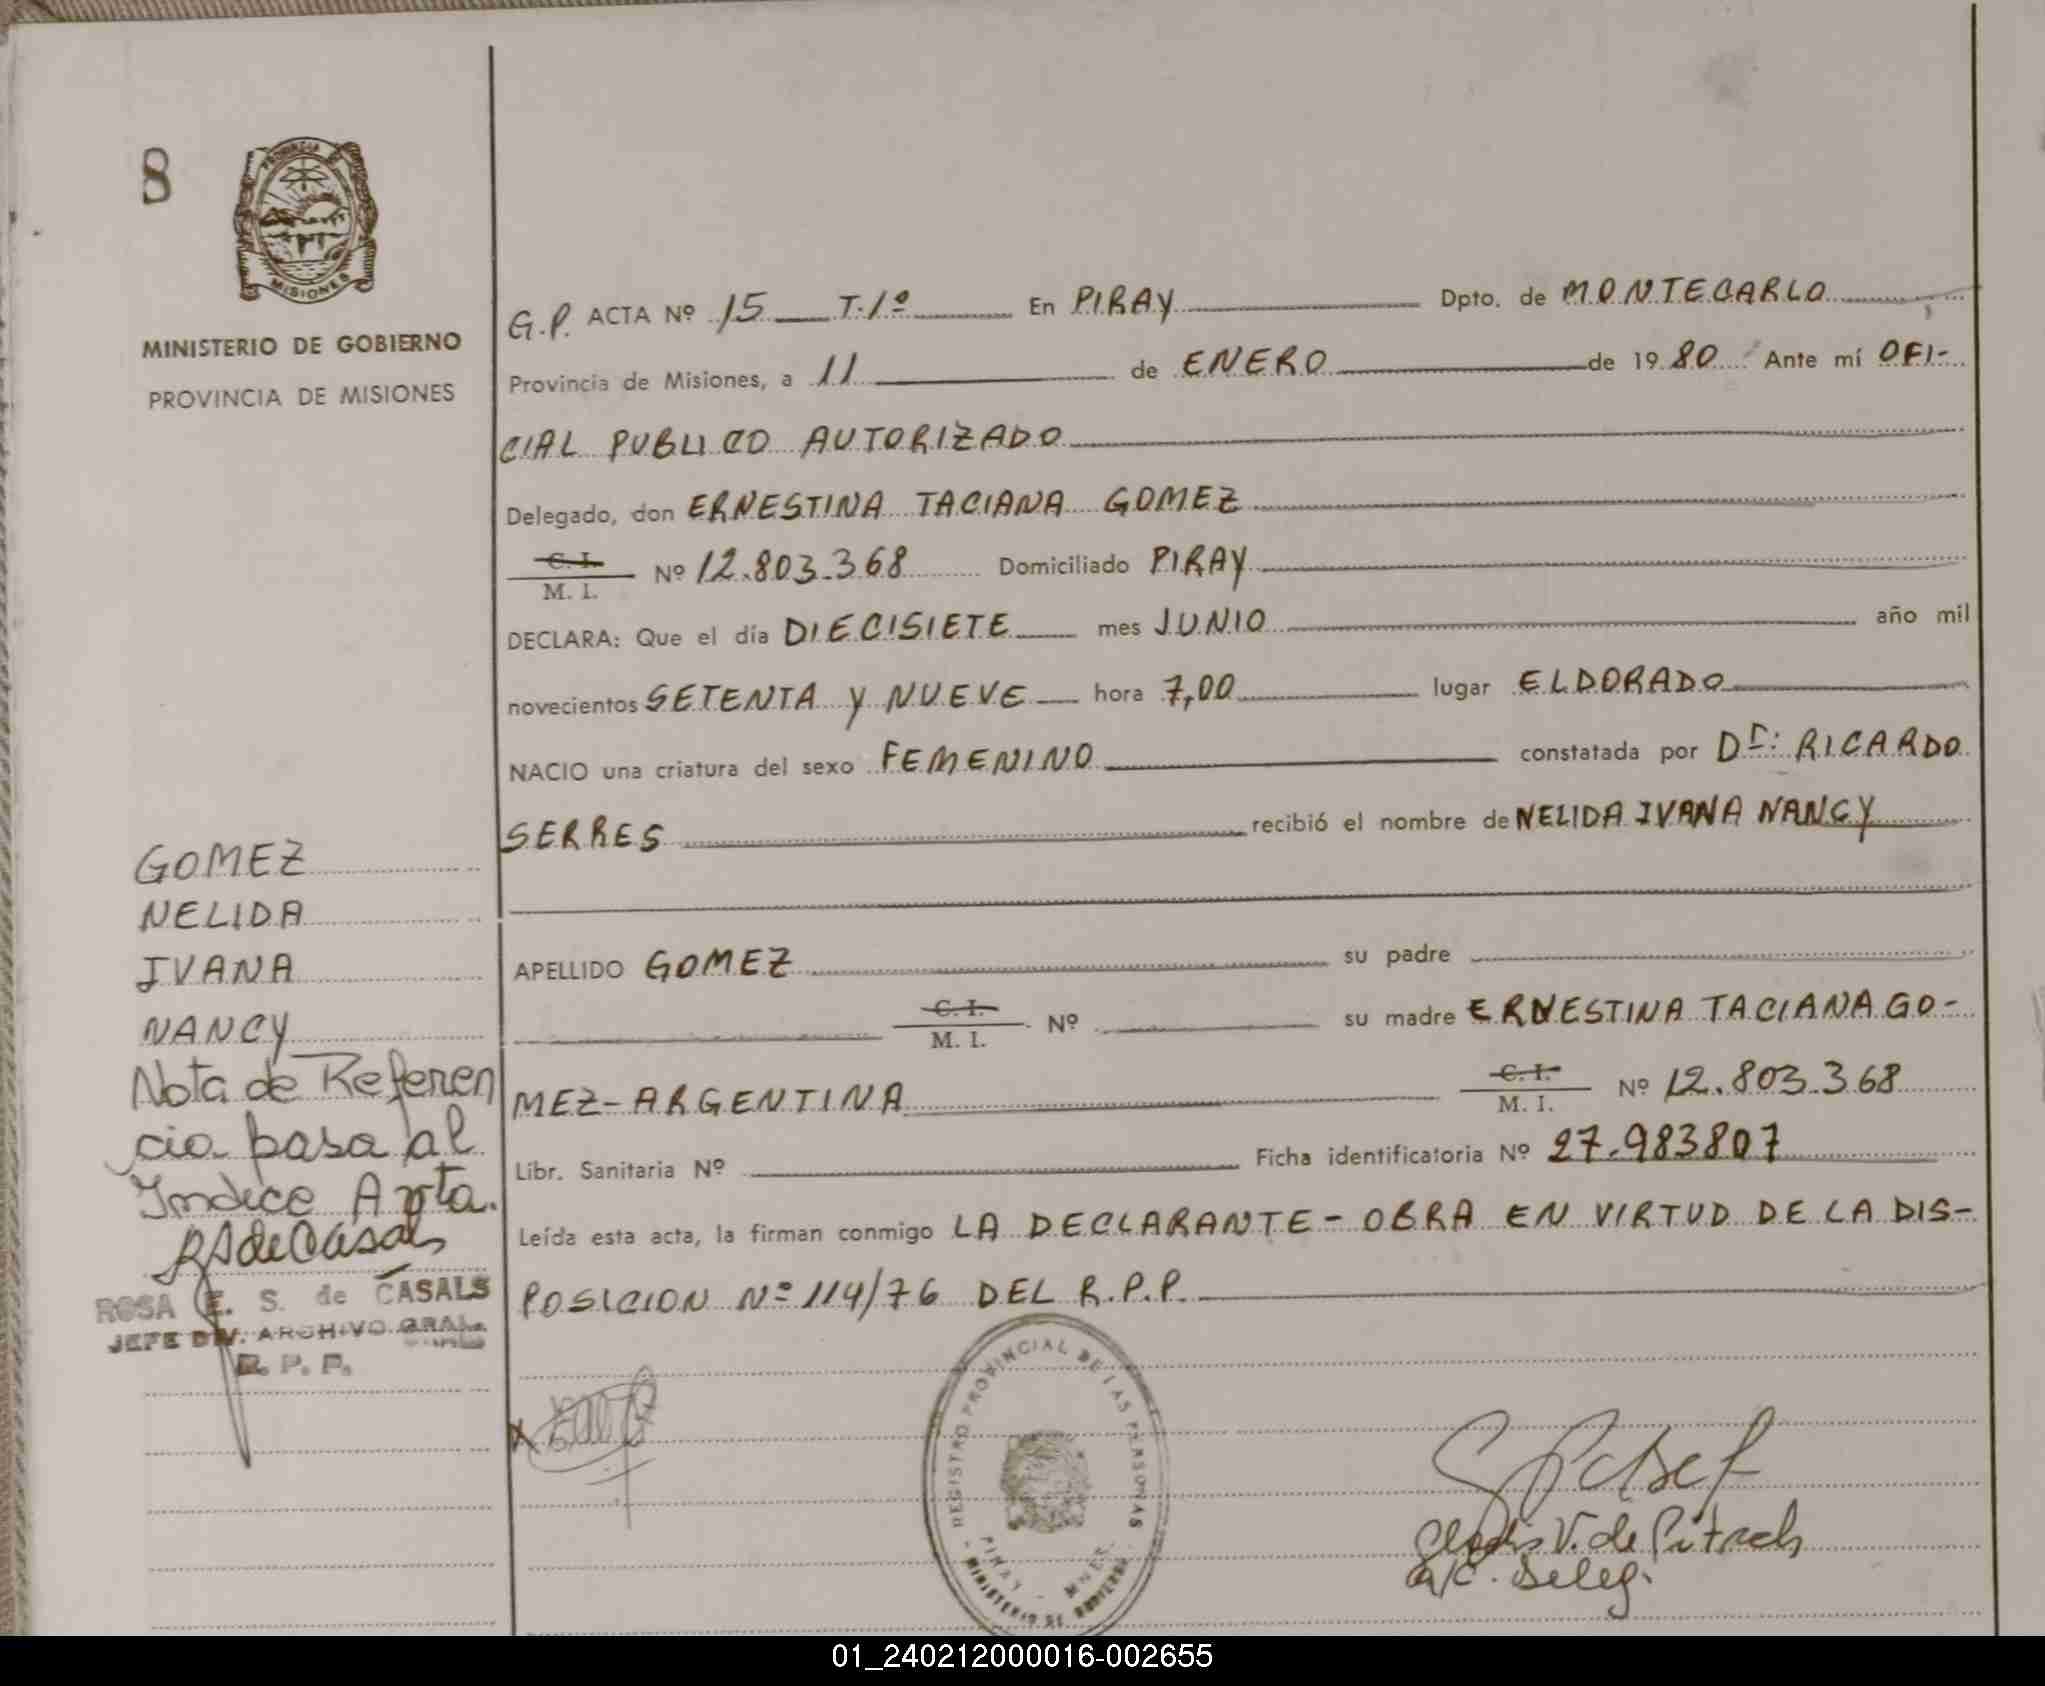 8
PROVINCIA DE
MISIONES
MINISTERIO DE GOBIERNO
PROVINCIA DE MISIONES
G.P. ACTA Nº 15 T.1º En PIRAY Dpto. de MONTECARLO
Provincia de Misiones, a 11 de ENERO de 1980 Ante mí OFI-
CIAL PUBLICO AUTORIZADO
Delegado, don ERNESTINA TACIANA GOMEZ
C. I.
M. I. Nº 12.803.368 Domiciliado PIRAY
DECLARA: Que el día DIECISIETE mes JUNIO año mil
novecientos SETENTA Y NUEVE hora 7,00 lugar ELDORADO
NACIO una criatura del sexo FEMENINO constatada por Dr: RICARDO
SERRES recibió el nombre de NELIDA IVANA NANCY
APELLIDO GOMEZ su padre
C. I.
M. I. Nº su madre ERNESTINA TACIANA GO-
MEZ-ARGENTINA C. I.
M. I. Nº 12.803.368
Libr. Sanitaria Nº Ficha identificatoria Nº 27.983807
Leída esta acta, la firman conmigo LA DECLARANTE - OBRA EN VIRTUD DE LA DIS-
POSICION Nº 114/76 DEL R.P.P.
GOMEZ
NELIDA
IVANA
NANCY
Nota de Referen
cia pasa al
Indice Acta.
RSdeCasals
ROSA E. S. de CASALS
JEFE DIV. ARCHIVO GRAL.
R. P. P.
X
REGISTRO PROVINCIAL DE LAS PERSONAS
PIRAY - MNES.
MINISTERIO DE GOBIERNO
V. de
a/c. Deleg.
01_240212000016-002655